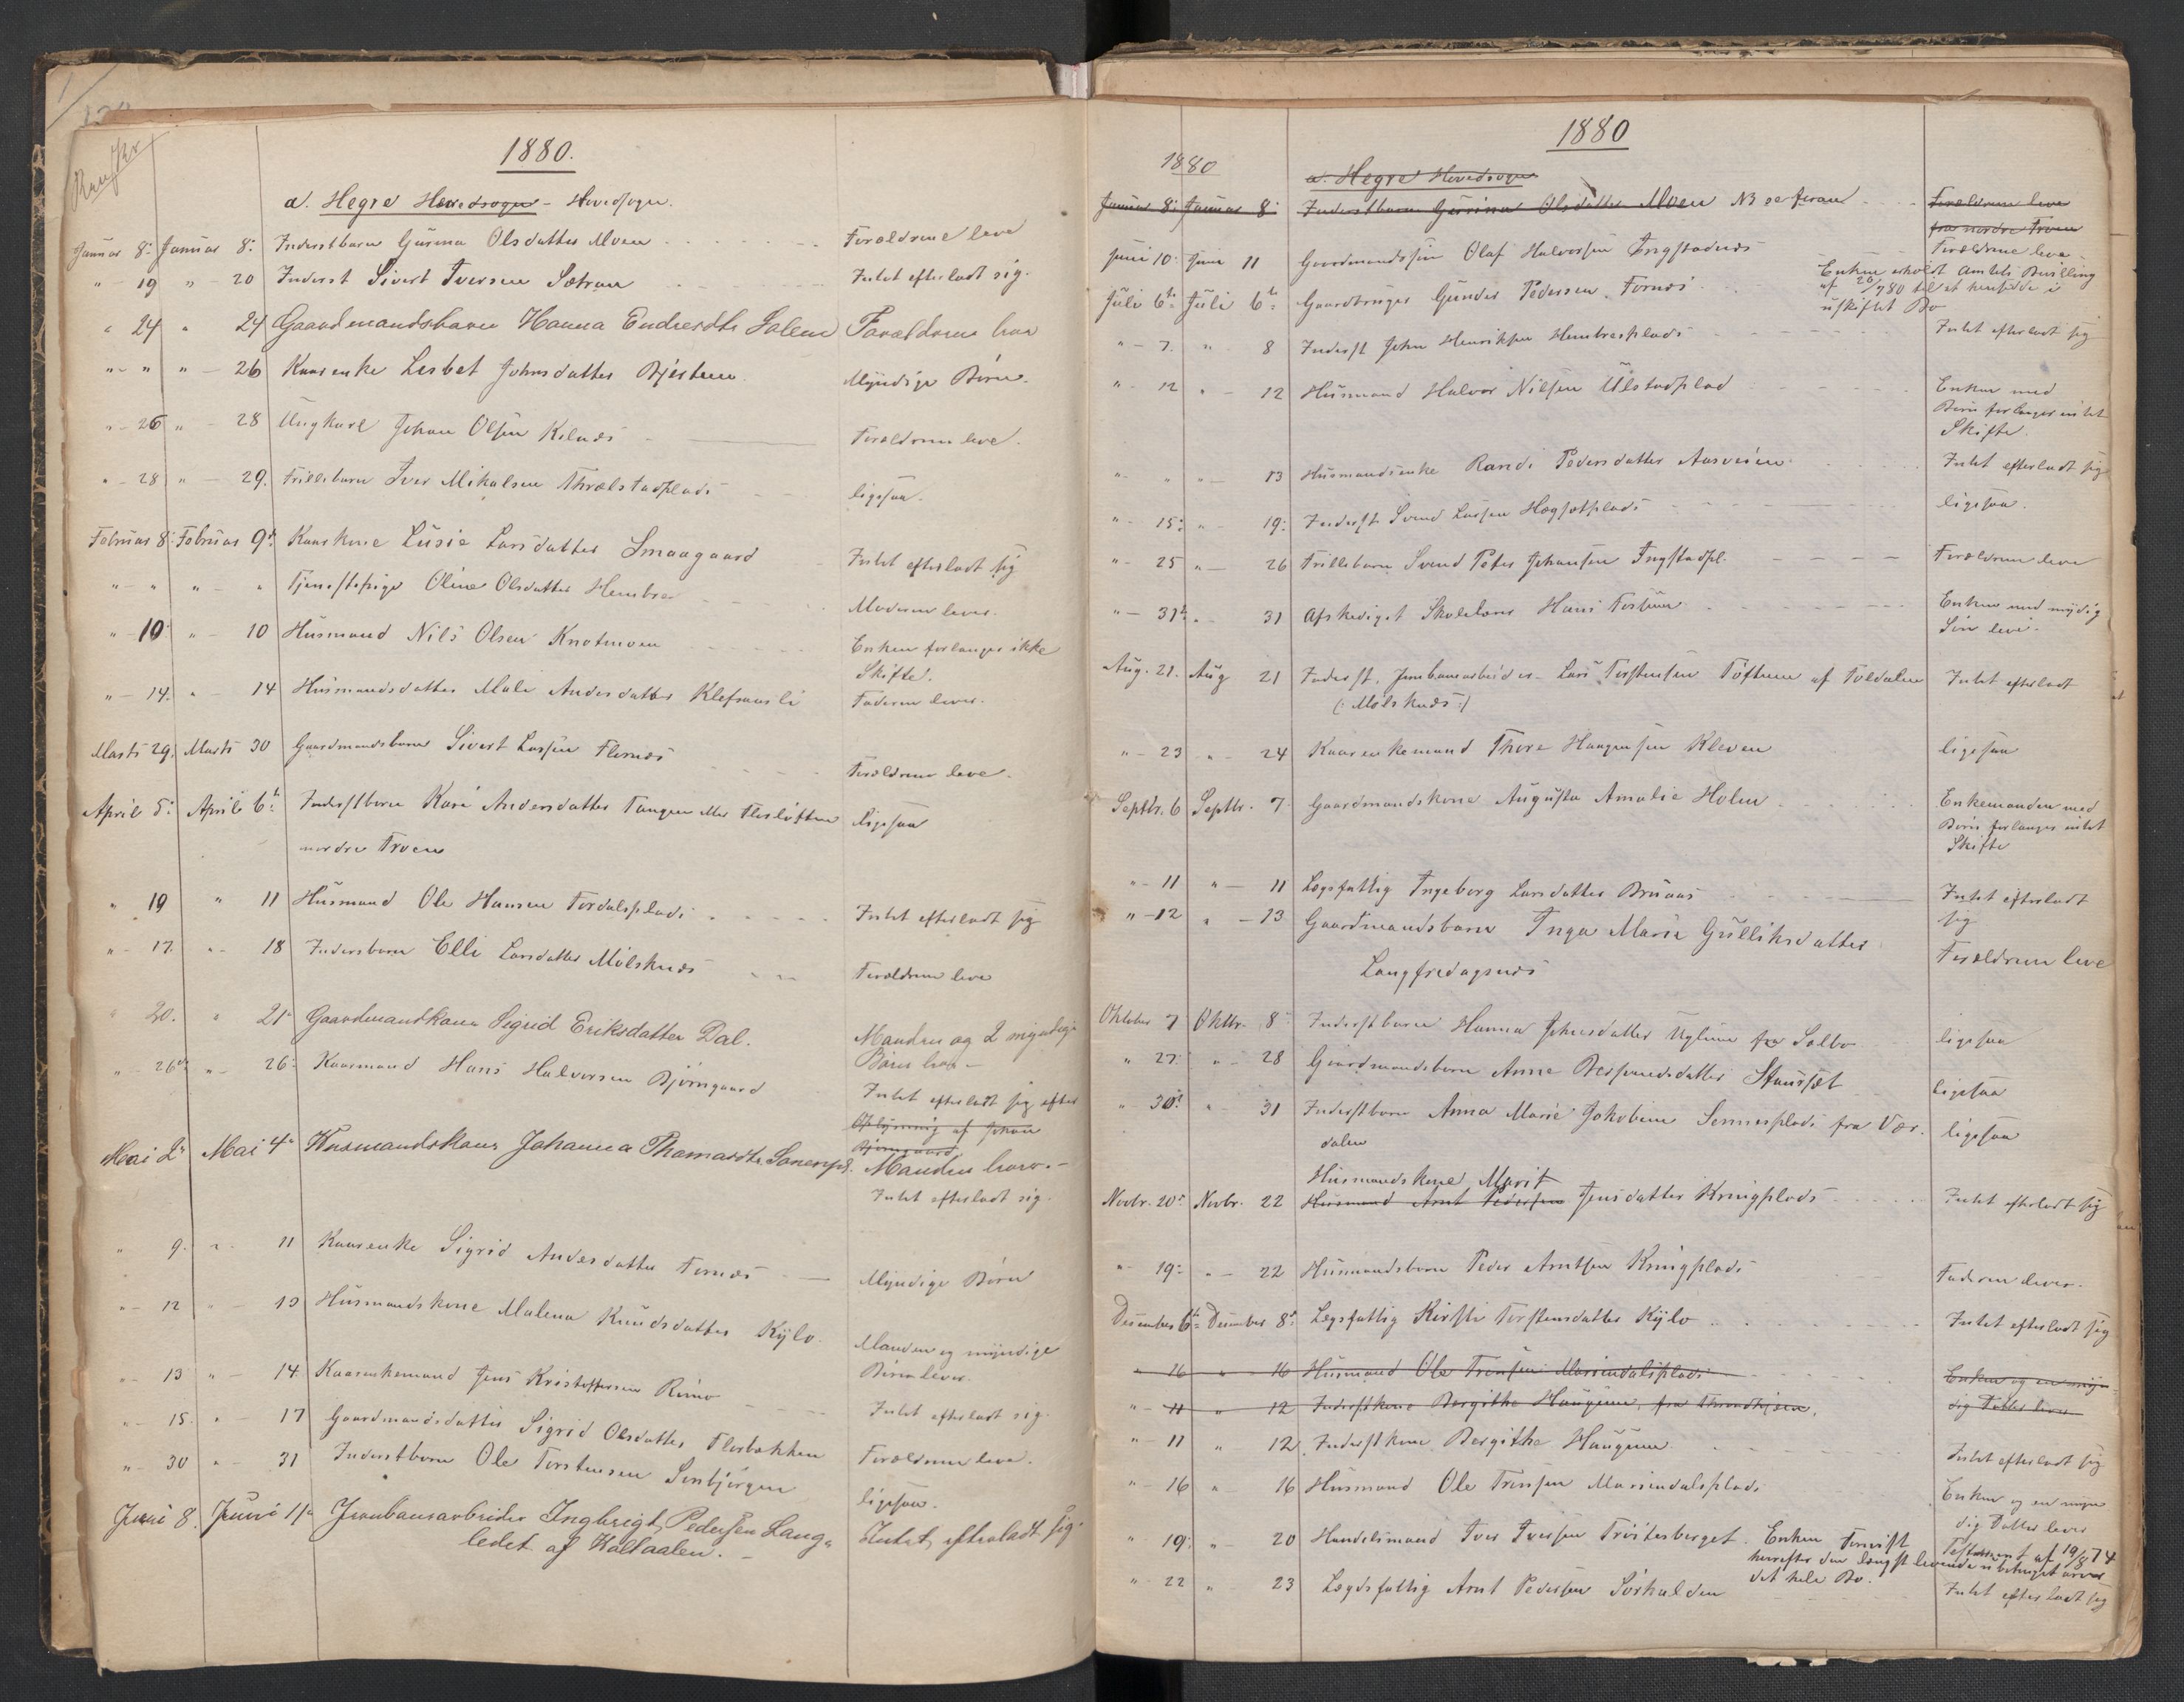 1880.
a. Hegre Hovedsogn - Hovedsogn.
Januar 8. Januar 8. Inderstbarn Gurina Olsdatter Moen Forældrene leve
" - 19 " - 20 Inderst Sivert Iversen Sætran Intet efterladt sig.
" 24 " 24 Gaardmandsbarn Hanna Endresdtr Salem Forældrene leve
" - " " - 26 Kaarenke Lisbet Johnsdatter Bjertem Myndige Børn.
" - 26 " - 28 Ungkarl Johan Olsen Kilnæs Forældrene leve.
" - 28 " - 29. Frillebarn Iver Mikalsen Thrælstadplads ligesaa.
Februar 8. Februar 9. Kaarkone Lusie Larsdatter Smaagaard Intet efterladt sig
" - " " - " Tjenestepige Oline Olsdatter Hembre Moderen lever.
" - 10 " - 10 Husmand Nils Olsen Knotmoen Enken forlanger ikke
Skifte.
" - 14. " - 14 Husmandsdatter Mali Andersdatter Klefsaasli Faderen lever.
Marts 29. Marts 30 Gaardmandsbarn Sivert Larsen Flornæs Forældrene leve.
April 5. April 6. Inderstbarn Kari Andersdatter Tangen eller Flosløften ligesaa
nordre Troen
" 10 " 11 Husmand Ole Hansen Fordalsplads Intet efterladt sig
" - 17. " - 18 Indersbarn Elli Larsdatter Mølsknæs Forældrene leve
" 20. " 21 Gaardmandkone Sigrid Eriksdatter Dal. Manden og 2 myndige
Børn leve -
" - 26 " - 26. Kaarmand Hans Halvorsen Bjørngaard Intet efterladt sig efter
Oplysning af Johan
Bjørngaard.
Mai 2 Mai 4 Husmandskone Johanna Thomasdtr. Sonenpl. Manden leve. -
Intet efterladt sig.
" 9. " - 11 Kaarenke Sigrid Andersdatter Fornæs Myndige Børn
" - 12 " - 13 Husmandskone Malena Knudsdatter Kylo. Manden og myndige
Børn lever.
" - 13 " - 14. Kaarenkemand Jens Kristoffersen Rimo Intet efterladt sig.
" - 15. " - 17 Gaardmandsdatter Sigrid Olsdatter Florbakken Forældrene leve.
" - 30 " - 31 Inderstbarn Ole Torstensen Sonbjørgen ligesaa.
Juni 8. Juni 11 Jernbanearbeider Ingbrigt Pedersen Lang- Intet efterladt sig.
ledet af Holtaalen. -
1880
1880
a. Hegre Hovedsogn
Januar 8. Januar 8. Inderstbarn Gurina Olsdatter Moen NB se foran Forældrene leve
fra nordre Troen
Juni 10. Juni 11 Gaardmandssøn Olaf Halvorsen Ingstadnæs Forældrene leve.
Juli 6. Juli 6. Gaardbruger Gunder Pedersen Fornæs. Enken erholdt Amtets Bevilling
af 26/7 80 til at hensidde i
uskiftet Bo
" - 7. " - 8 Inderst John Henriksen Hembresplads Intet efterladt sig
" - 12 " - 12 Husmand Halvor Nilsen Ulstadplads Enken med
Børn forlanger intet
Skifte.
" - " " - 13 Husmandsenke Randi Pedersdatter Aasveien Intet efterladt sig
" - 15. " - 19. Inderst Svend Larsen Hægsetplads ligesaa.
" - 25 " - 26 Frillebarn Svend Peter Johansen Ingstadpl. Forældrene leve
" - 31 " - 31 Afskediget Skolelærer Hans Forsmo Enken med myndig
Søn leve.
Aug. 21. Aug 21 Inderst, Jernbanearbeider Lars Torstensen Toftum af Foldalen Intet efterladt
(: Mølsknæs :)
" - 23 " - 24 Kaarenkemand Thore Haagensen Kleven ligesaa
Septbr. 6 Septbr. 7. Gaardmandskone Augusta Amalie Holm Enkemanden med
Børn forlanger intet
Skifte
" - 11 " - 11 Lægsfattig Ingeborg Larsdatter Bruaas Intet efterladt
sig
" - 12 " - 13 Gaardmandsbarn Inga Marie Gulliksdatter Forældrene leve
Langfredagsnæs
Oktober 7 Oktbr. 8 Inderstbarn Hanna Johnsdatter Uglum fra Selbo ligesaa
" 27. " - 28 Gaardmandsbarn Anne Bersvendsdatter Stuesæt ligesaa
" 30. " - 31 Inderstbarn Anna Marie Jakobine Sonnesplads fra Vær- ligesaa
dalen
Husmandskone Marit
Novbr. 20. Novbr. 22 Husmand Arnt Pedersen Jensdatter Kringplads Intet efterladt sig
" - 19. " - 22 Husmandsbarn Peder Arntsen Kringplads Faderen lever.
December 6. December 8. Lægsfattig Kirsti Torstensdatter Kylo Intet efterladt sig
" - 16 " - 16 Husmand Ole Tronsen Mariendalsplads Enken og en myn-
" - 11 " 12 Inderstkone Bergithe Haugum, fra Throndhjem, dig Datter leve
" - 11 " 12 Inderstkone Bergithe Haugum Intet efterladt sig
" - 16 " 16 Husmand Ole Tronsen Mariendalsplads Enken og en myn
dig Datter lever
" 19. " - 20 Handelsmand Iver Iversen Trøiterberget. Enken Testament af 19/8 74
hvorefter den længst levende ubetinget arver
det hele Bo.
" - 22 " 23 Lægdsfattig Arnt Pedersen Sørkulden Intet efterladt sig